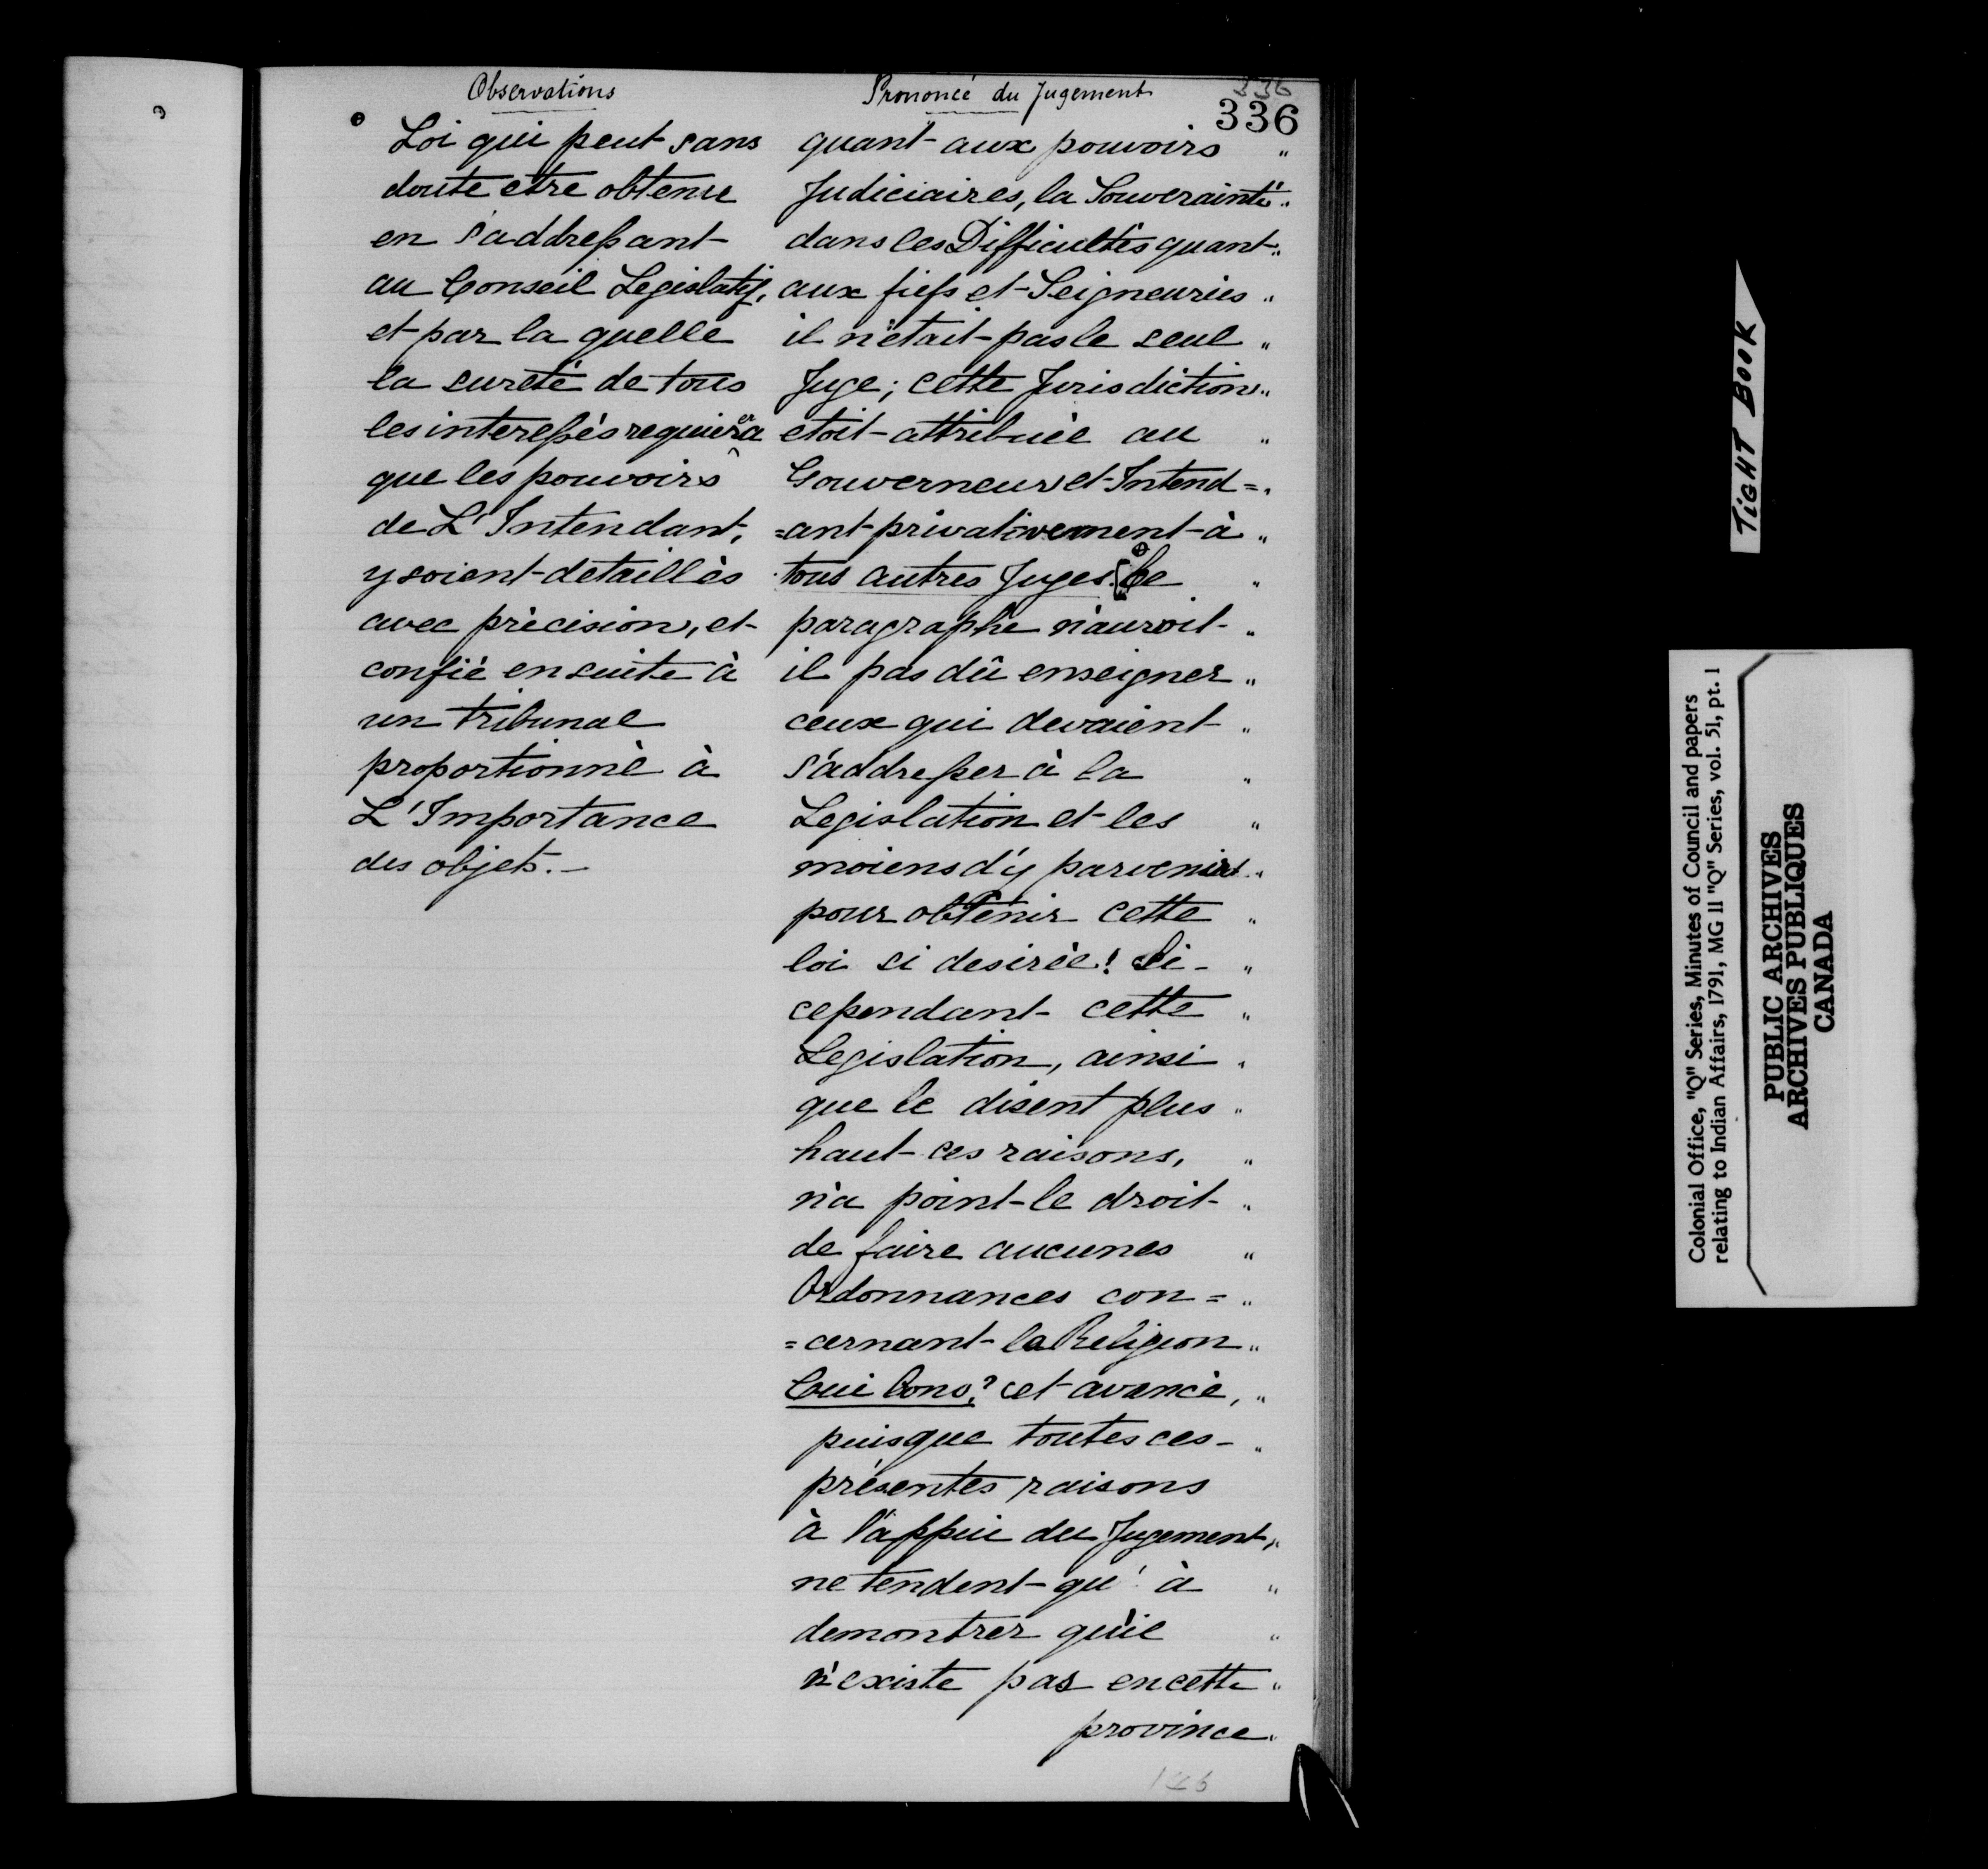 Observations
Loi qui peut sans
doute etre obtenue
en s'addressant
au Conseil Legislatif,
et par la quelle
la sureté de tous
les interessés requierera
que les pouvoirs
de L'Intendant,
y soient detaillès
avec précision, et
confié en suite à
un tribunal
proportionné à
L'Importance
des objets.—
Prononcé du Jugement
336
336
quant aux pouvoirs "
Judiciaires, la Souverainté "
dans les Difficultés quant "
aux fiefs et Seigneuries "
il n'etait pas le seul "
Juge; cette Jurisdiction "
etoit attribuée au "
Gouverneur et Intend= "
=ant privativement à "
tous autres Juges. [Ce "
paragraphe n'auroit "
il pas dû enseigner "
ceux qui devaient "
s'addresser à la "
Legislation et les "
moiens d'y parvenir "
pour obtenir cette "
loi si desirée! Si "
cependant cette "
Legislation, ainsi "
que le disent plus "
haut ces raisons, "
n'a point le droit "
de faire aucunes "
Ordonnances con= "
=cernant la Religion "
Cui bono? cet avancé, "
puisque toutes ces "
présentes raisons
à l'appui du Jugement, "
ne tendent qu'à "
demontrer qu'il "
n'existe pas en cette "
province "
TiGHT BOOK
Colonial Office, "Q" Series, Minutes of Council and papers
relating to Indian Affairs, 1791, MG 11 "Q" Series, vol. 51, pt. 1
PUBLIC ARCHIVES
ARCHIVES PUBLIQUES
CANADA